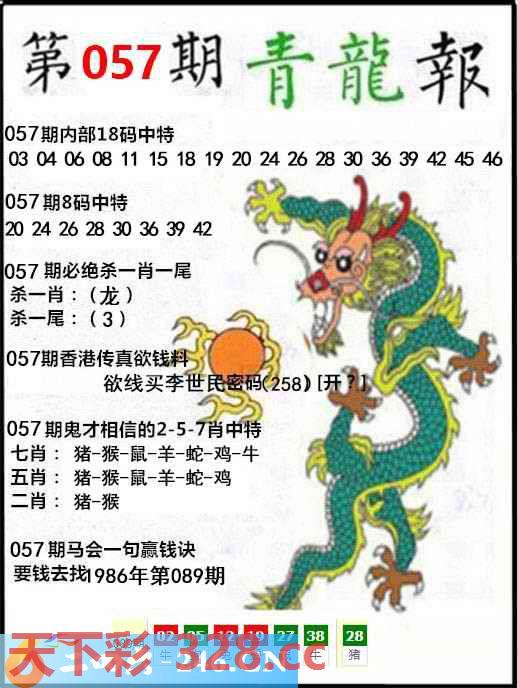 第057期青龍報
057期内部18码中特
03 04 06 08 11 15 18 19 20 24 26 28 30 36 39 42 45 46
057期8码中特
20 24 26 28 30 36 39 42
057期必绝杀一肖一尾
杀一肖：（龙）
杀一尾：（3）
057期香港传真欲钱料
欲线买李世民密码(258)[开?]
057期鬼才相信的2-5-7肖中特
七肖：猪-猴-鼠-羊-蛇-鸡-牛
五肖：猪-猴-鼠-羊-蛇-鸡
二肖：猪-猴
057期马会一句赢钱诀
要钱去找1986年第089期
02 05 19 27 38 28
牛 牛 猪
天下彩 328.cc